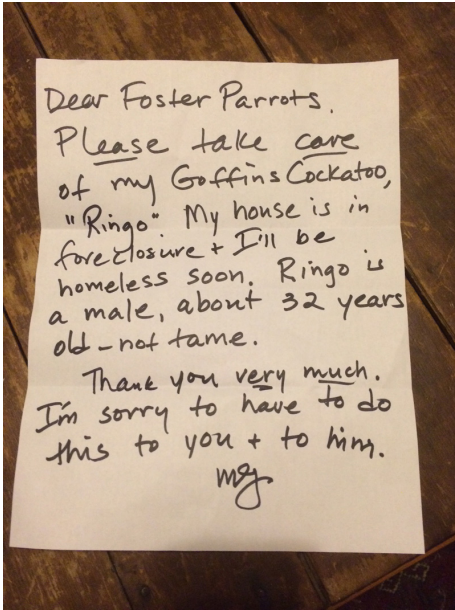 Dear Foster Parrots.
Please take care
of my Goffins Cockatoo,
"Ringo". My house is in
foreclosure + I'll be
homeless soon. Ringo is
a male, about 32 years
old - not tame.
Thank you very much.
I'm sorry to have to do
this to you + to him.